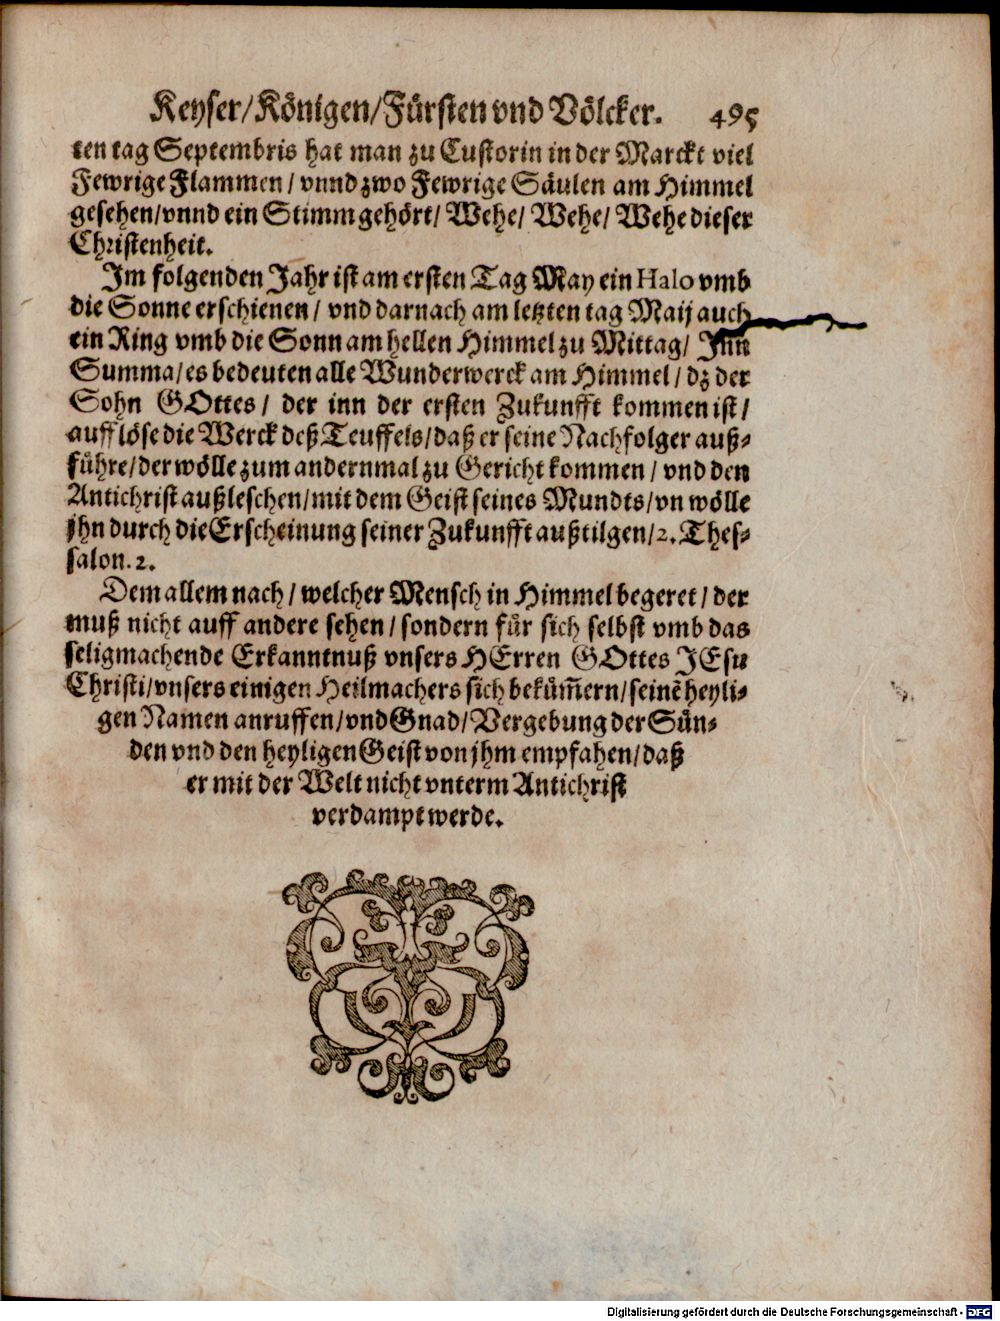 Keyser/Königen/Fürsten vnd Völcker. 495
ten tag Septembris hat man zu Custorin in der Marckt viel
Fewrige Flammen/ vnnd zwo Fewrige Säulen am Himmel
gesehen/vnnd ein Stimm gehört/ Wehe/ Wehe/ Wehe dieser
Christenheit.
Im folgenden Jahr ist am ersten Tag May ein Halo vmb
die Sonne erschienen/ vnd darnach am letzten tag Maij auch
ein Ring vmb die Sonn am hellen Himmel zu Mittag/ Inn
Summa/es bedeuten alle Wunderwerck am Himmel/ dz der
Sohn GOttes/ der inn der ersten Zukunfft kommen ist/
aufflöse die Werck deß Teuffels/daß er seine Nachfolger auß-
führe/der wölle zum andernmal zu Gericht kommen/ vnd den
Antichrist außleschen/mit dem Geist seines Mundts/vn wölle
jhn durch die Erscheinung seiner Zukunfft außtilgen/2. Thes-
salon. 2.
Dem allem nach/ welcher Mensch in Himmel begeret/ der
muß nicht auff andere sehen/ sondern für sich selbst vmb das
seligmachende Erkanntnuß vnsers HErren GOttes JEsu
Christi/vnsers einigen Heilmachers sich bekům̃ern/seinẽ heyli-
gen Namen anruffen/vnd Gnad/Vergebung der Sün-
den vnd den heyligen Geist von jhm empfahen/daß
er mit der Welt nicht vnterm Antichrist
verdampt werde.
Digitalisierung gefördert durch die Deutsche Forschungsgemeinschaft - DFG